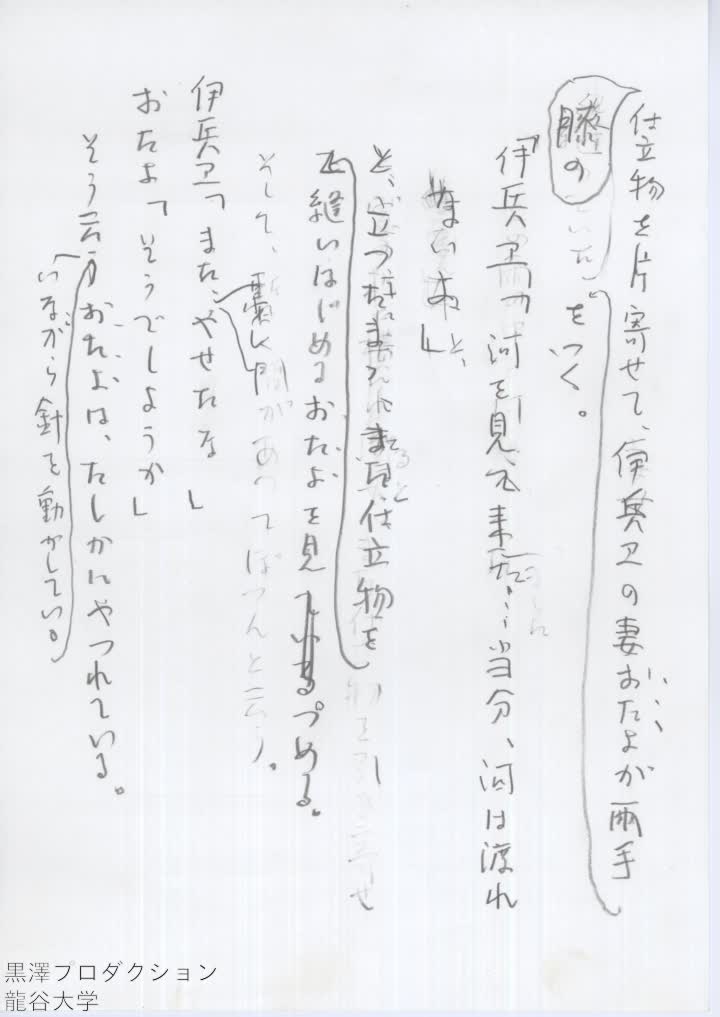 仕立物を片寄せて、伊兵卫の妻おたよが両手
をつく。
膝の
「伊兵卫「河を見て来た…当分、河は渡れ
まい」と、
と、立つたまま 仕立物を
縫いはじめるおたよを見つめる。
そして、暫く間があつてぽつんと云う。
伊兵卫「また、やせたな」
おたよ「そうでしようか」
そう云うおたよは、たしかにやつれている。
いながら針を動かしている。
黒澤プロダクション
龍谷大学